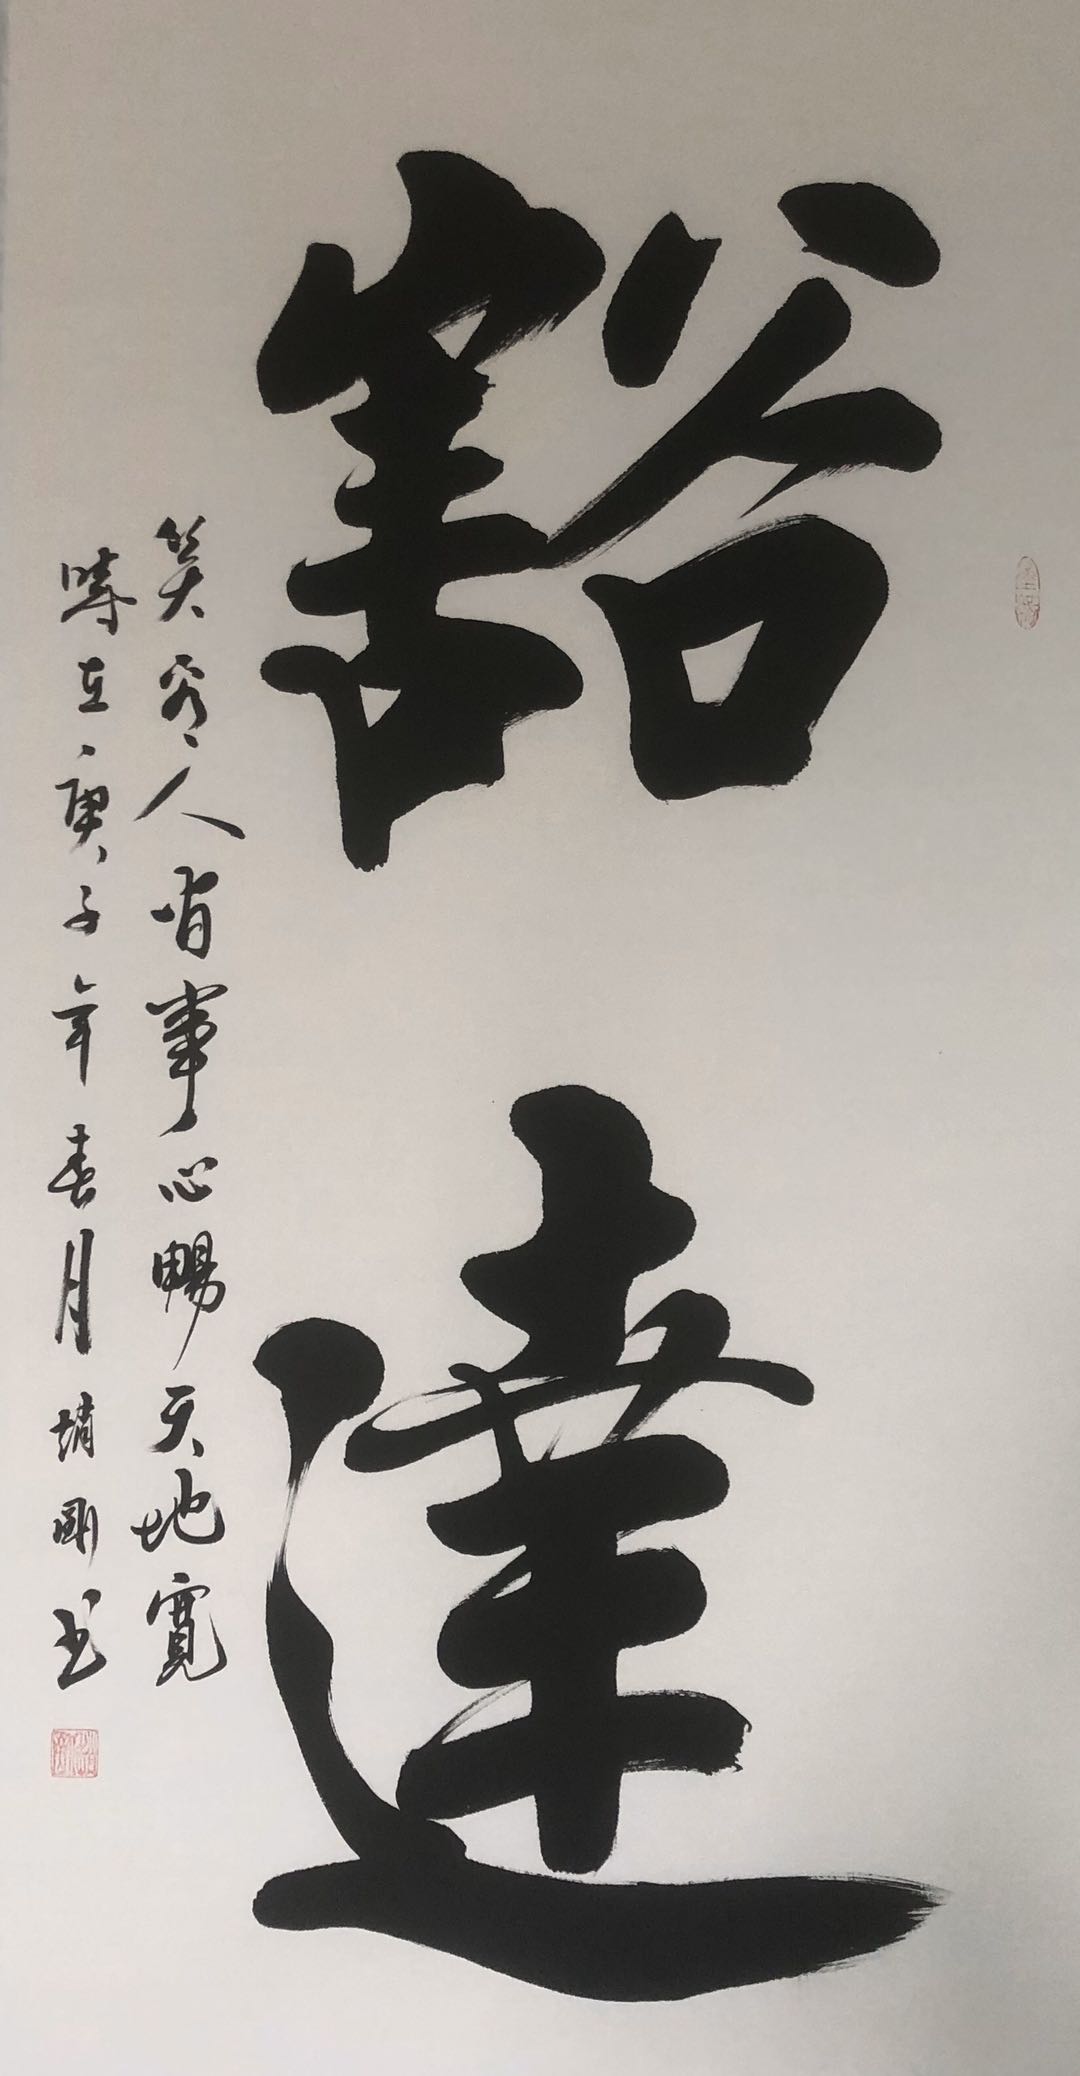 豁達
笑看人省事心暢天地寬
時在庚子年春月靖剛书